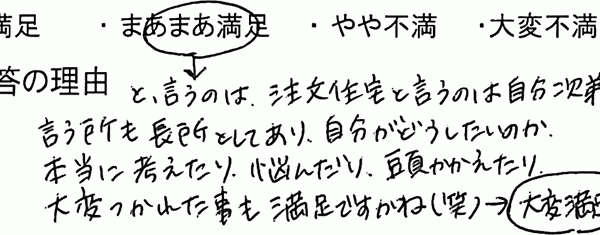 満足 ・まあまあ満足 ・やや不満 ・大変不満
答の理由 と、言うのは、注文住宅と言うのは自分次第
言う所も長所としてあり、自分がどうしたいのか、
本当に考えたり、悩んだり、頭かかえたり、
大変つかれた事も満足ですかね(笑)→大変満足